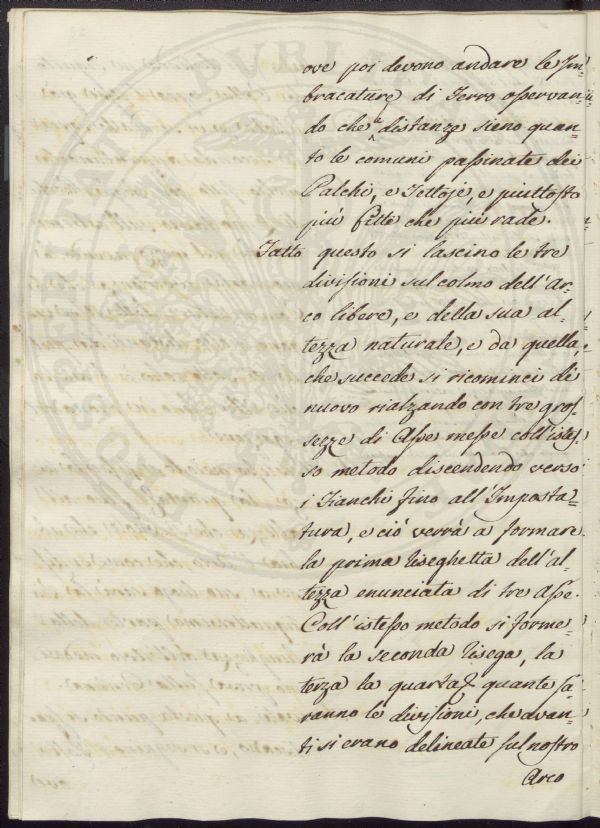 ove poi devono andare le Im=
bracature di Ferro osservan=
do che le distanze sieno quan=
to le comuni passinate dei
Palchi, e Tettoje, e piuttosto
più fitte che più rade.
Fatto questo si lascino le tre
divisioni sul colmo dell'Ar=
co libere, e della sua al=
tezza naturale, e da quella,
che succede si ricominci di
nuovo rialzando con tre gros=
sezze di Asse messe coll'istes=
so metodo discendendo verso
i Fianchi fino all'Imposta=
tura, e ciò verrà a formare
la prima Riseghetta dell'al=
tezza enunciata di tre Asse.
Coll'istesso metodo si forme=
rà la seconda Risega, la
terza la quarta quante sa=
ranno le divisioni, che avan=
ti si erano delineate sul nostro
Arco